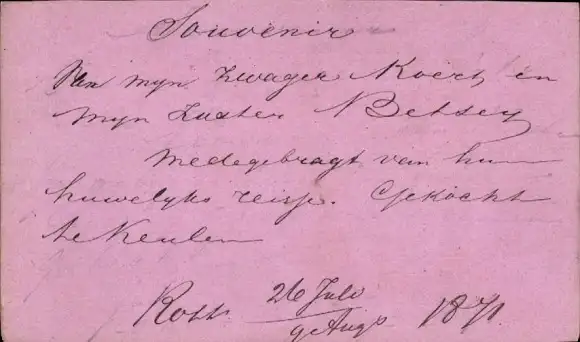 Souvenir
Van mijn Zwager Koert en
mijn Zuster Betsey
Medegebragt van hun
huwelyks reisje. Gekocht
te Keulen
Rott. 26 July 1871.
9 Aug